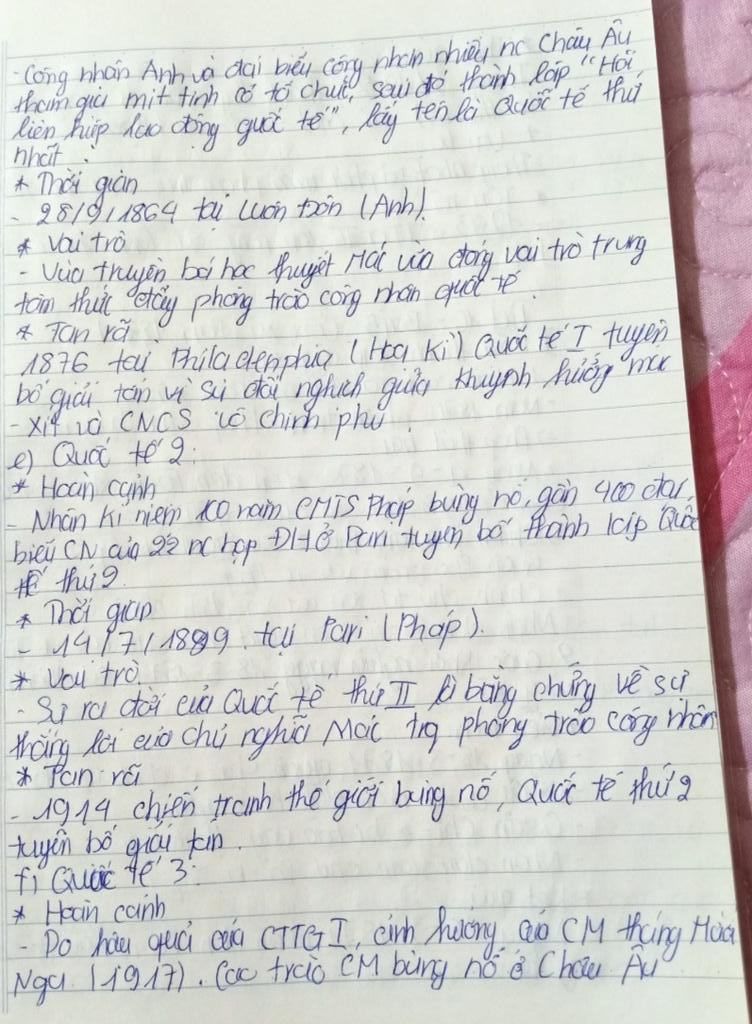 - Công nhân Anh và đại biểu công nhân nhiều nc Châu Âu
tham gia mít tinh có tổ chức, sau đó thành lập "Hội
liên hiệp lao động quốc tế", lấy tên là Quốc tế thứ
nhất.
* Thời gian
- 28/9/1864 tại Luân Đôn (Anh).
* Vai trò
- Vừa truyền bá học thuyết Mác vừa đóng vai trò trung
tâm thúc đẩy phong trào công nhân quốc tế.
* Tan rã
1876 tại Philadenphia (Hoa Kì) Quốc tế I tuyên
bố giải tán vì sự đối nghịch giữa khuynh hướng mác
- xít và CNCS vô chính phủ.
e) Quốc tế 2:
* Hoàn cảnh
- Nhân kỉ niệm 100 năm CMTS Pháp bùng nổ, gần 400 đại
biểu CN của 22 nc họp ĐH ở Pari tuyên bố thành lập Quốc
tế thứ 2
* Thời gian
- 14/7/1889 tại Pari (Pháp).
* Vai trò
- Sự ra đời của Quốc tế thứ II là bằng chứng về sự
thắng lợi của chủ nghĩa Mác trg phong trào công nhân
* Tan rã
- 1914 chiến tranh thế giới bùng nổ, Quốc tế thứ 2
tuyên bố giải tán.
f) Quốc tế 3:
* Hoàn cảnh
- Do hậu quả của CTTG I, ảnh hưởng của CM tháng Mười
Nga (1917). Cao trào CM bùng nổ ở Châu Âu